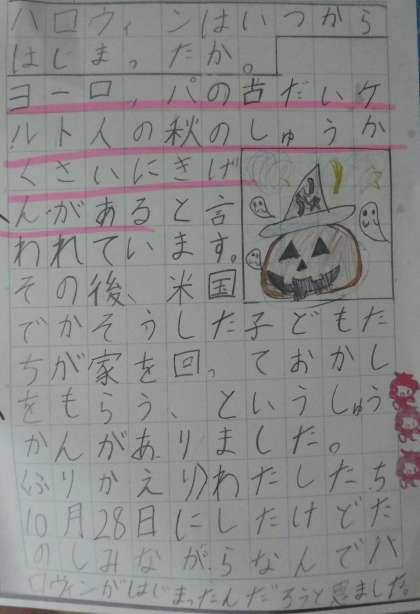 ハロウィンはいつから
はじまったか。
ヨーロッパの古だいケ
ルト人の秋のしゅうか
くさいにきげ
んがあると言
われています。
その後、米国
でかそうした子どもた
ちが家を回っておかし
をもらう、というしゅう
かんがありました。
(ふりかえり)わたしたち
10月28日にしたけどた
のしみながらなんでハ
ロウィンがはじまったんだろうと思ました。